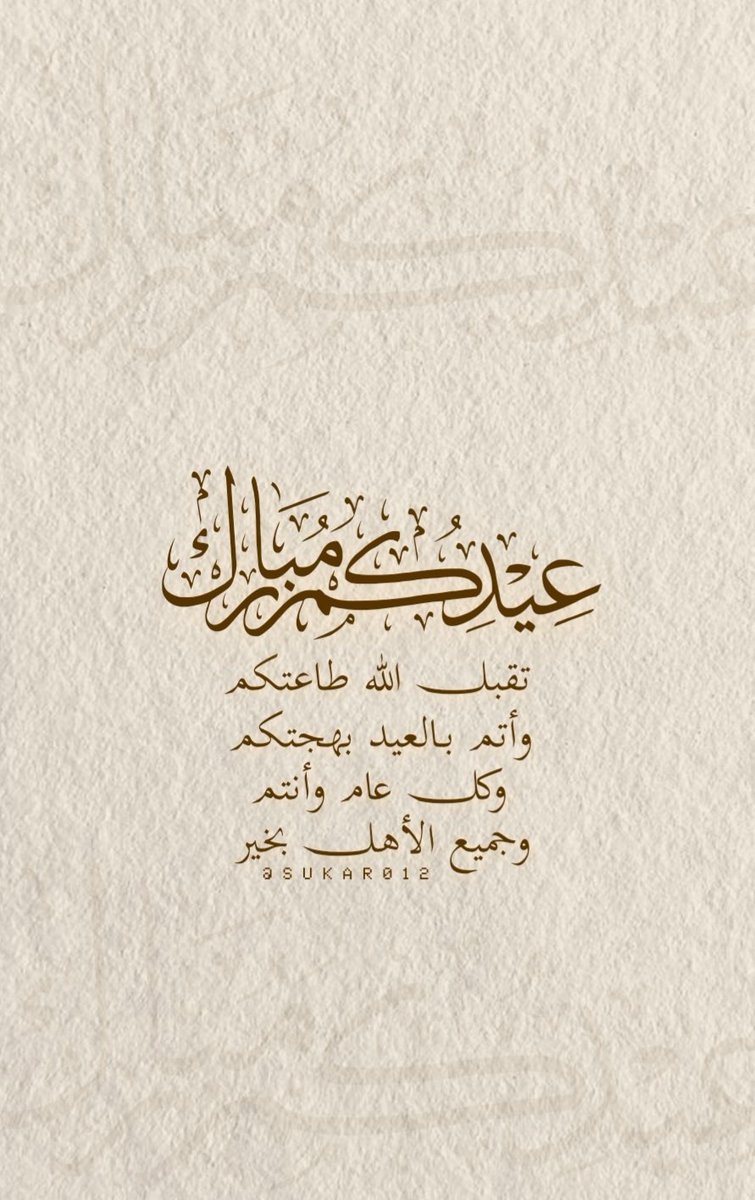 عِيْدُكُم مُبَارَك
تقبل الله طاعتكم
وأتم بالعيد بهجتكم
وكل عام وأنتم
وجميع الأهل بخير
@SUKAR012